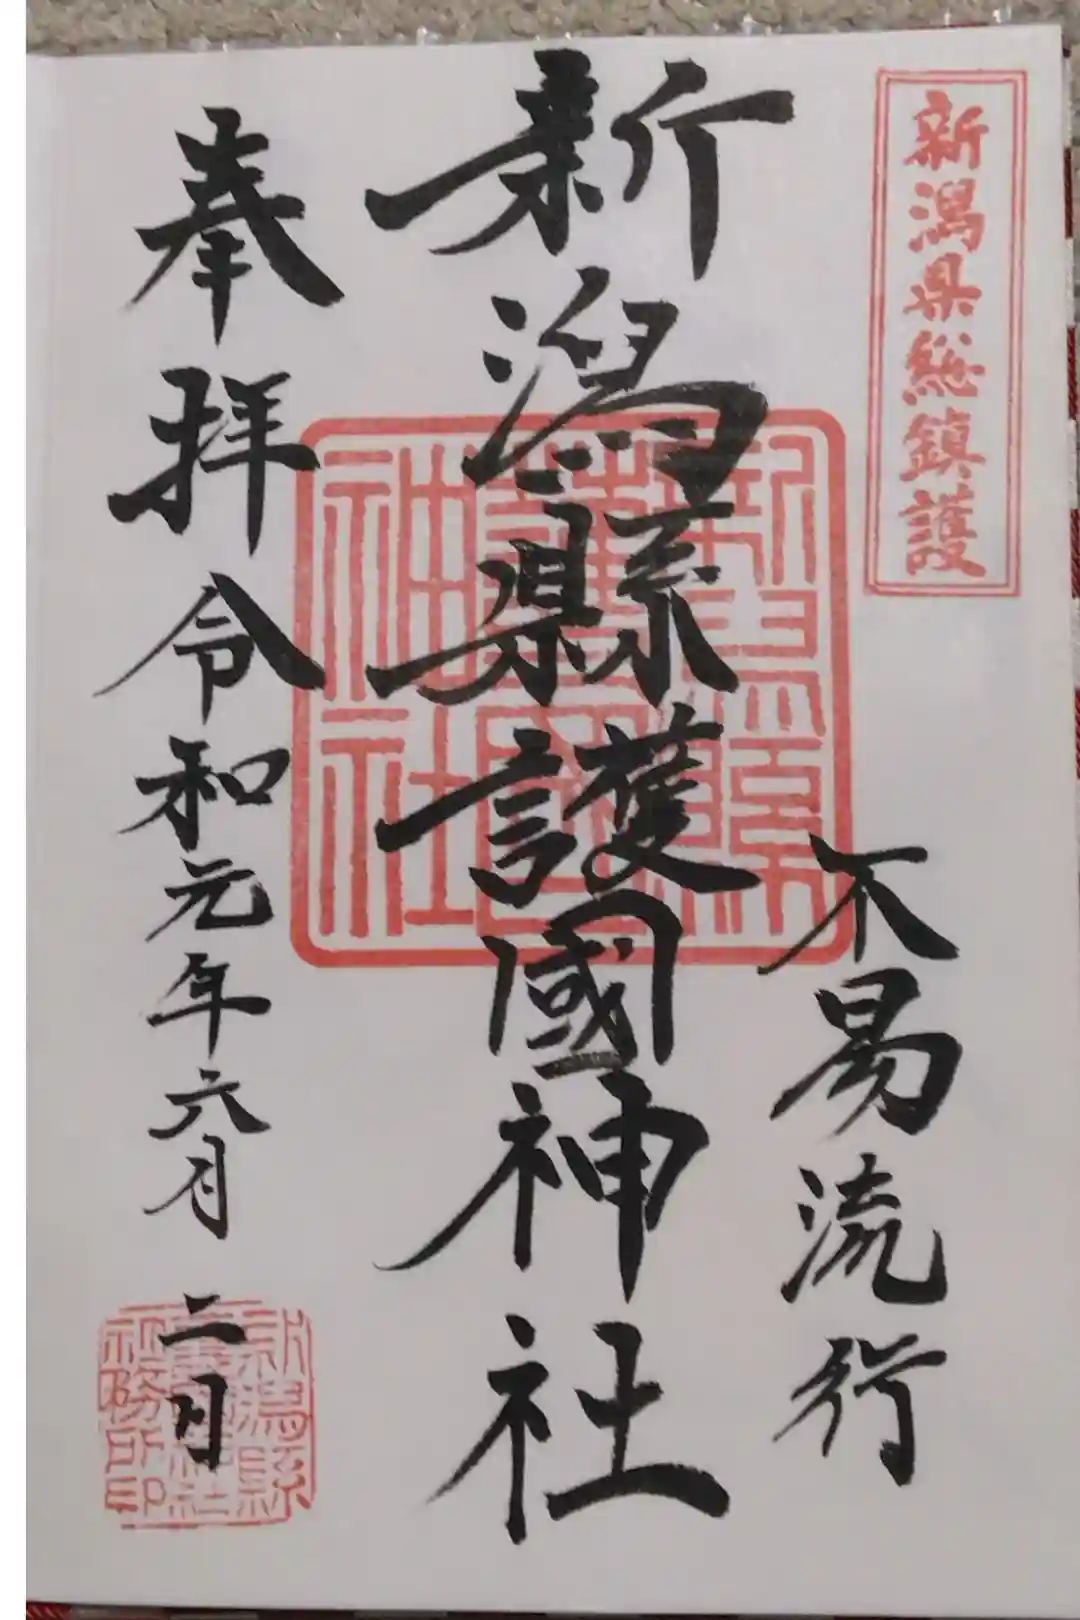 新潟県総鎮護
不易流行
新潟縣護國神社
奉拝
令和元年六月二日
新潟縣護國神社社務所印